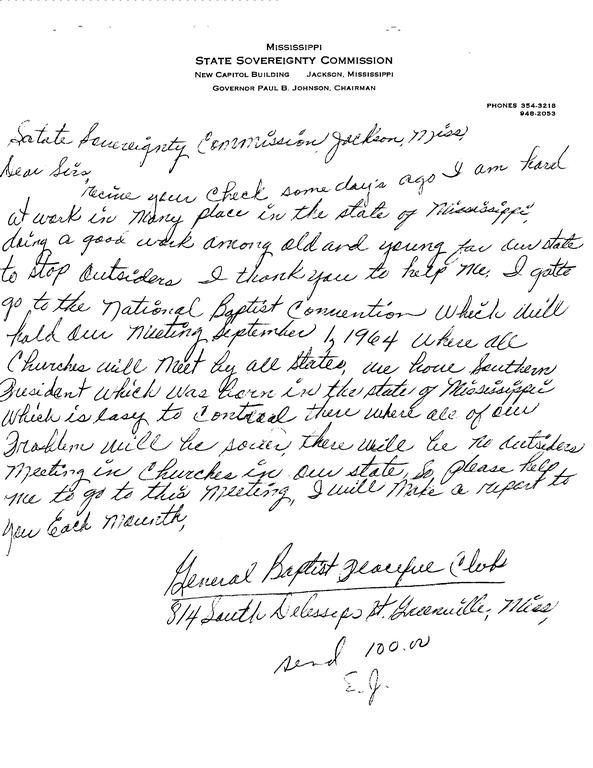 MISSISSIPPI
STATE SOVEREIGNTY COMMISSION
NEW CAPITOL BUILDING JACKSON, MISSISSIPPI
GOVERNOR PAUL B. JOHNSON, CHAIRMAN
PHONES 354-3218
948-2053
Satate Sovereignty Commission, Jackson, Miss,
Dear Sirs,
recive your check some day's ago I am hard
at work in many place in the state of Mississippi,
doing a good work among old and young for our state
to stop outsiders I thank you to help me. I gotto
go to the National Baptist Convention which will
hold our meeting September 1, 1964 where all
Churches will meet by all states, we have Southern
President which was born in the state of Mississippi
which is easy to there where all of our
Problem will be there will be no outsiders
meeting in Churches in our state, So, please help
me to go to this meeting, I will make a report to
you Each mounth,
General Baptist Clubs
814 South Delesseps St. Greenville, Miss,
send 100.00
E.J.